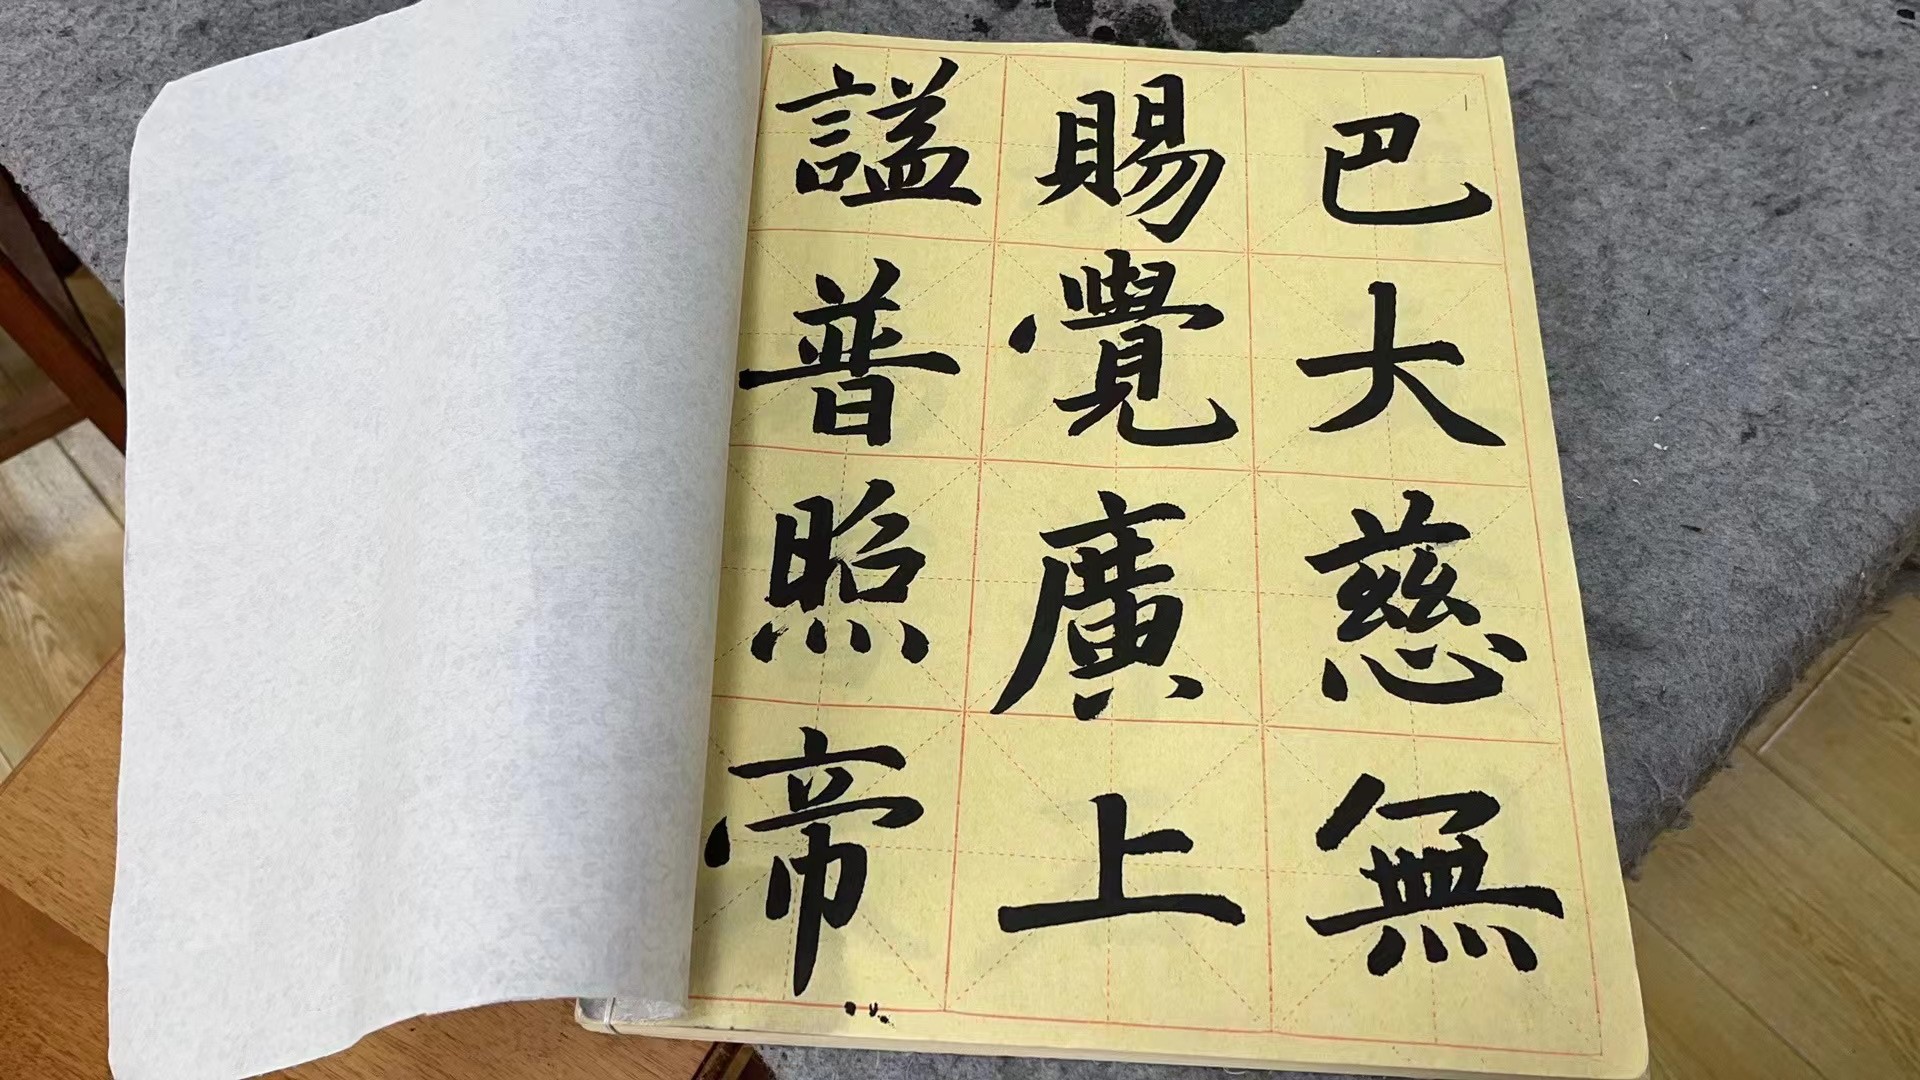 巴大慈無
賜覺廣上
謚普照帝